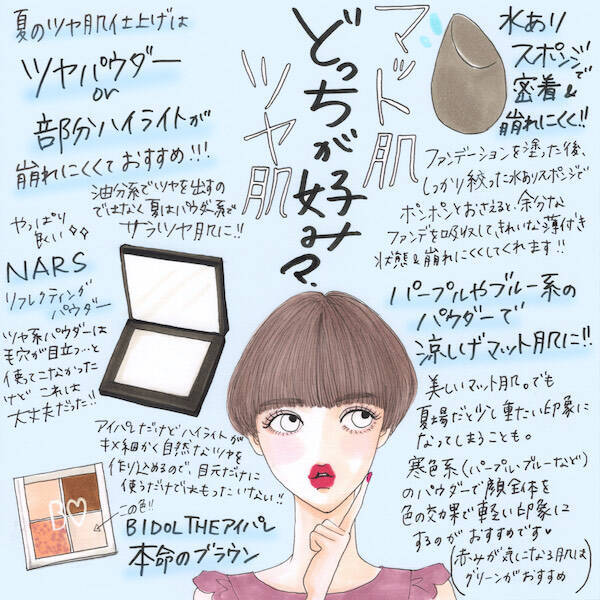 夏のツヤ肌仕上げは
ツヤパウダー
or
部分ハイライトが
崩れにくくておすすめ!!!
油分系でツヤを出すの
ではなく夏はパウダー系で
サラツヤ肌に!!
やっぱり
良い
NARS
リフレクティング
パウダー
ツヤ系パウダーは
毛穴が目立つ…と
使ってこなかった
けど これは
大丈夫だった!!
アイパレだけどハイライトが
キメ細かく自然なツヤを
作り込めるので、目元だけに
使うだけではもったいない!!
この色!!
B♡
BIDOL THEアイパレ
本命のブラウン
マット肌
どっちが好み?
ツヤ肌
水あり
スポンジで
密着&
崩れにくく!!
ファンデーションを塗った後、
しっかり絞った水ありスポンジで
ポンポンとおさえると、余分な
ファンデを吸収してきれいな薄付き
状態&崩れにくくしてくれます!!
パープルやブルー系の
パウダーで
涼しげマット肌に!!
美しいマット肌。でも
夏場だと少し重たい印象に
なってしまうことも。
寒色系(パープル・ブルーなど)
のパウダーで顔全体を
色の効果で軽い印象に
するのがおすすめです♡
(赤みが気になる肌は
グリーンがおすすめ)